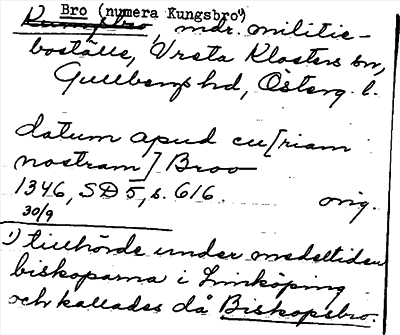 Bro (numera Kungsbro¹⁾)
Kungsbro, mdr. militie-
boställe, Vreta Klosters sn,
Gullbergs hd, Österg. l.
datum apud cu[riam
nostram] Broo
1346, SD 5, s. 616. orig.
30/9
¹⁾ tillhörde under medeltiden
biskoparna i Linköping
och kallades då Biskopsbro.